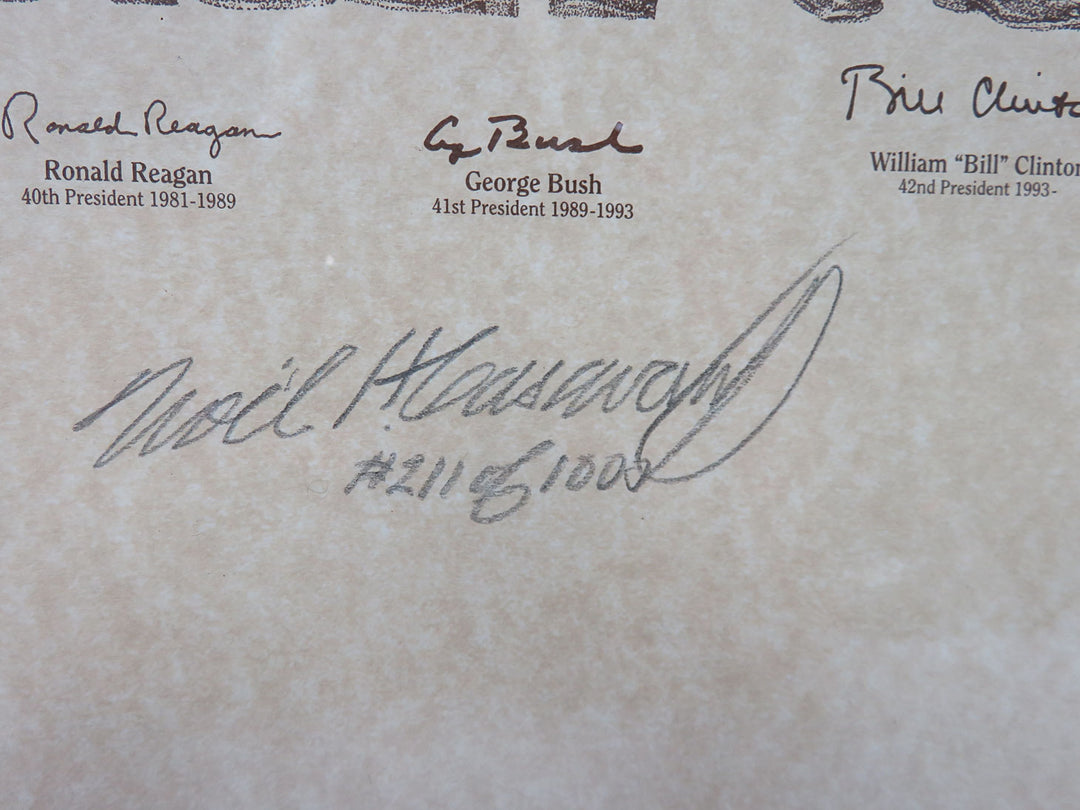 Ronald Reagan
Ronald Reagan
40th President 1981-1989
G Bush
George Bush
41st President 1989-1993
Bill Clinto
William “Bill” Clinton
42nd President 1993-
Neil
#211 of 1000